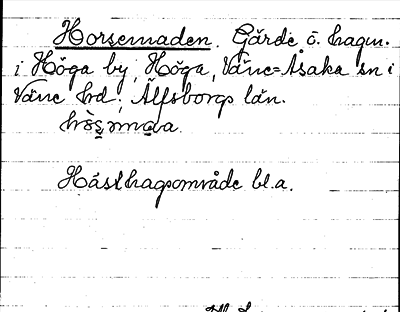 Horsemaden. Gärde o. hagm.
i Höga by, Höga, Väne-Åsaka sn i
Väne hrd, Älfsborgs län.
Hästhagsområde bl.a.